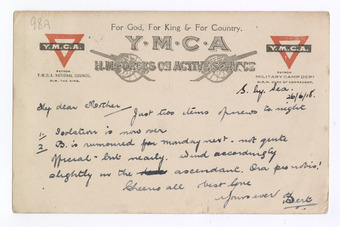 98A
For God, For King & For Country.
Y.M.C.A
Y.M.C.A.
Y.M.C.A.
H.M. FORCES ON ACTIVE SERVICE
PATRON
Y.M.C.A. NATIONAL COUNCIL
H.M. THE KING.
PATRON
MILITARY CAMP DEPT
S. by Sea.
26/6/18.
My dear Mother
Just two items of news to night
1 Isolation is now over
2 B. is rumoured for Monday next - not quite
official - but nearly. Wind accordingly
slightly in the ascendant. Ora pro nobis!
Cheerio all best love
Yours ever Bert